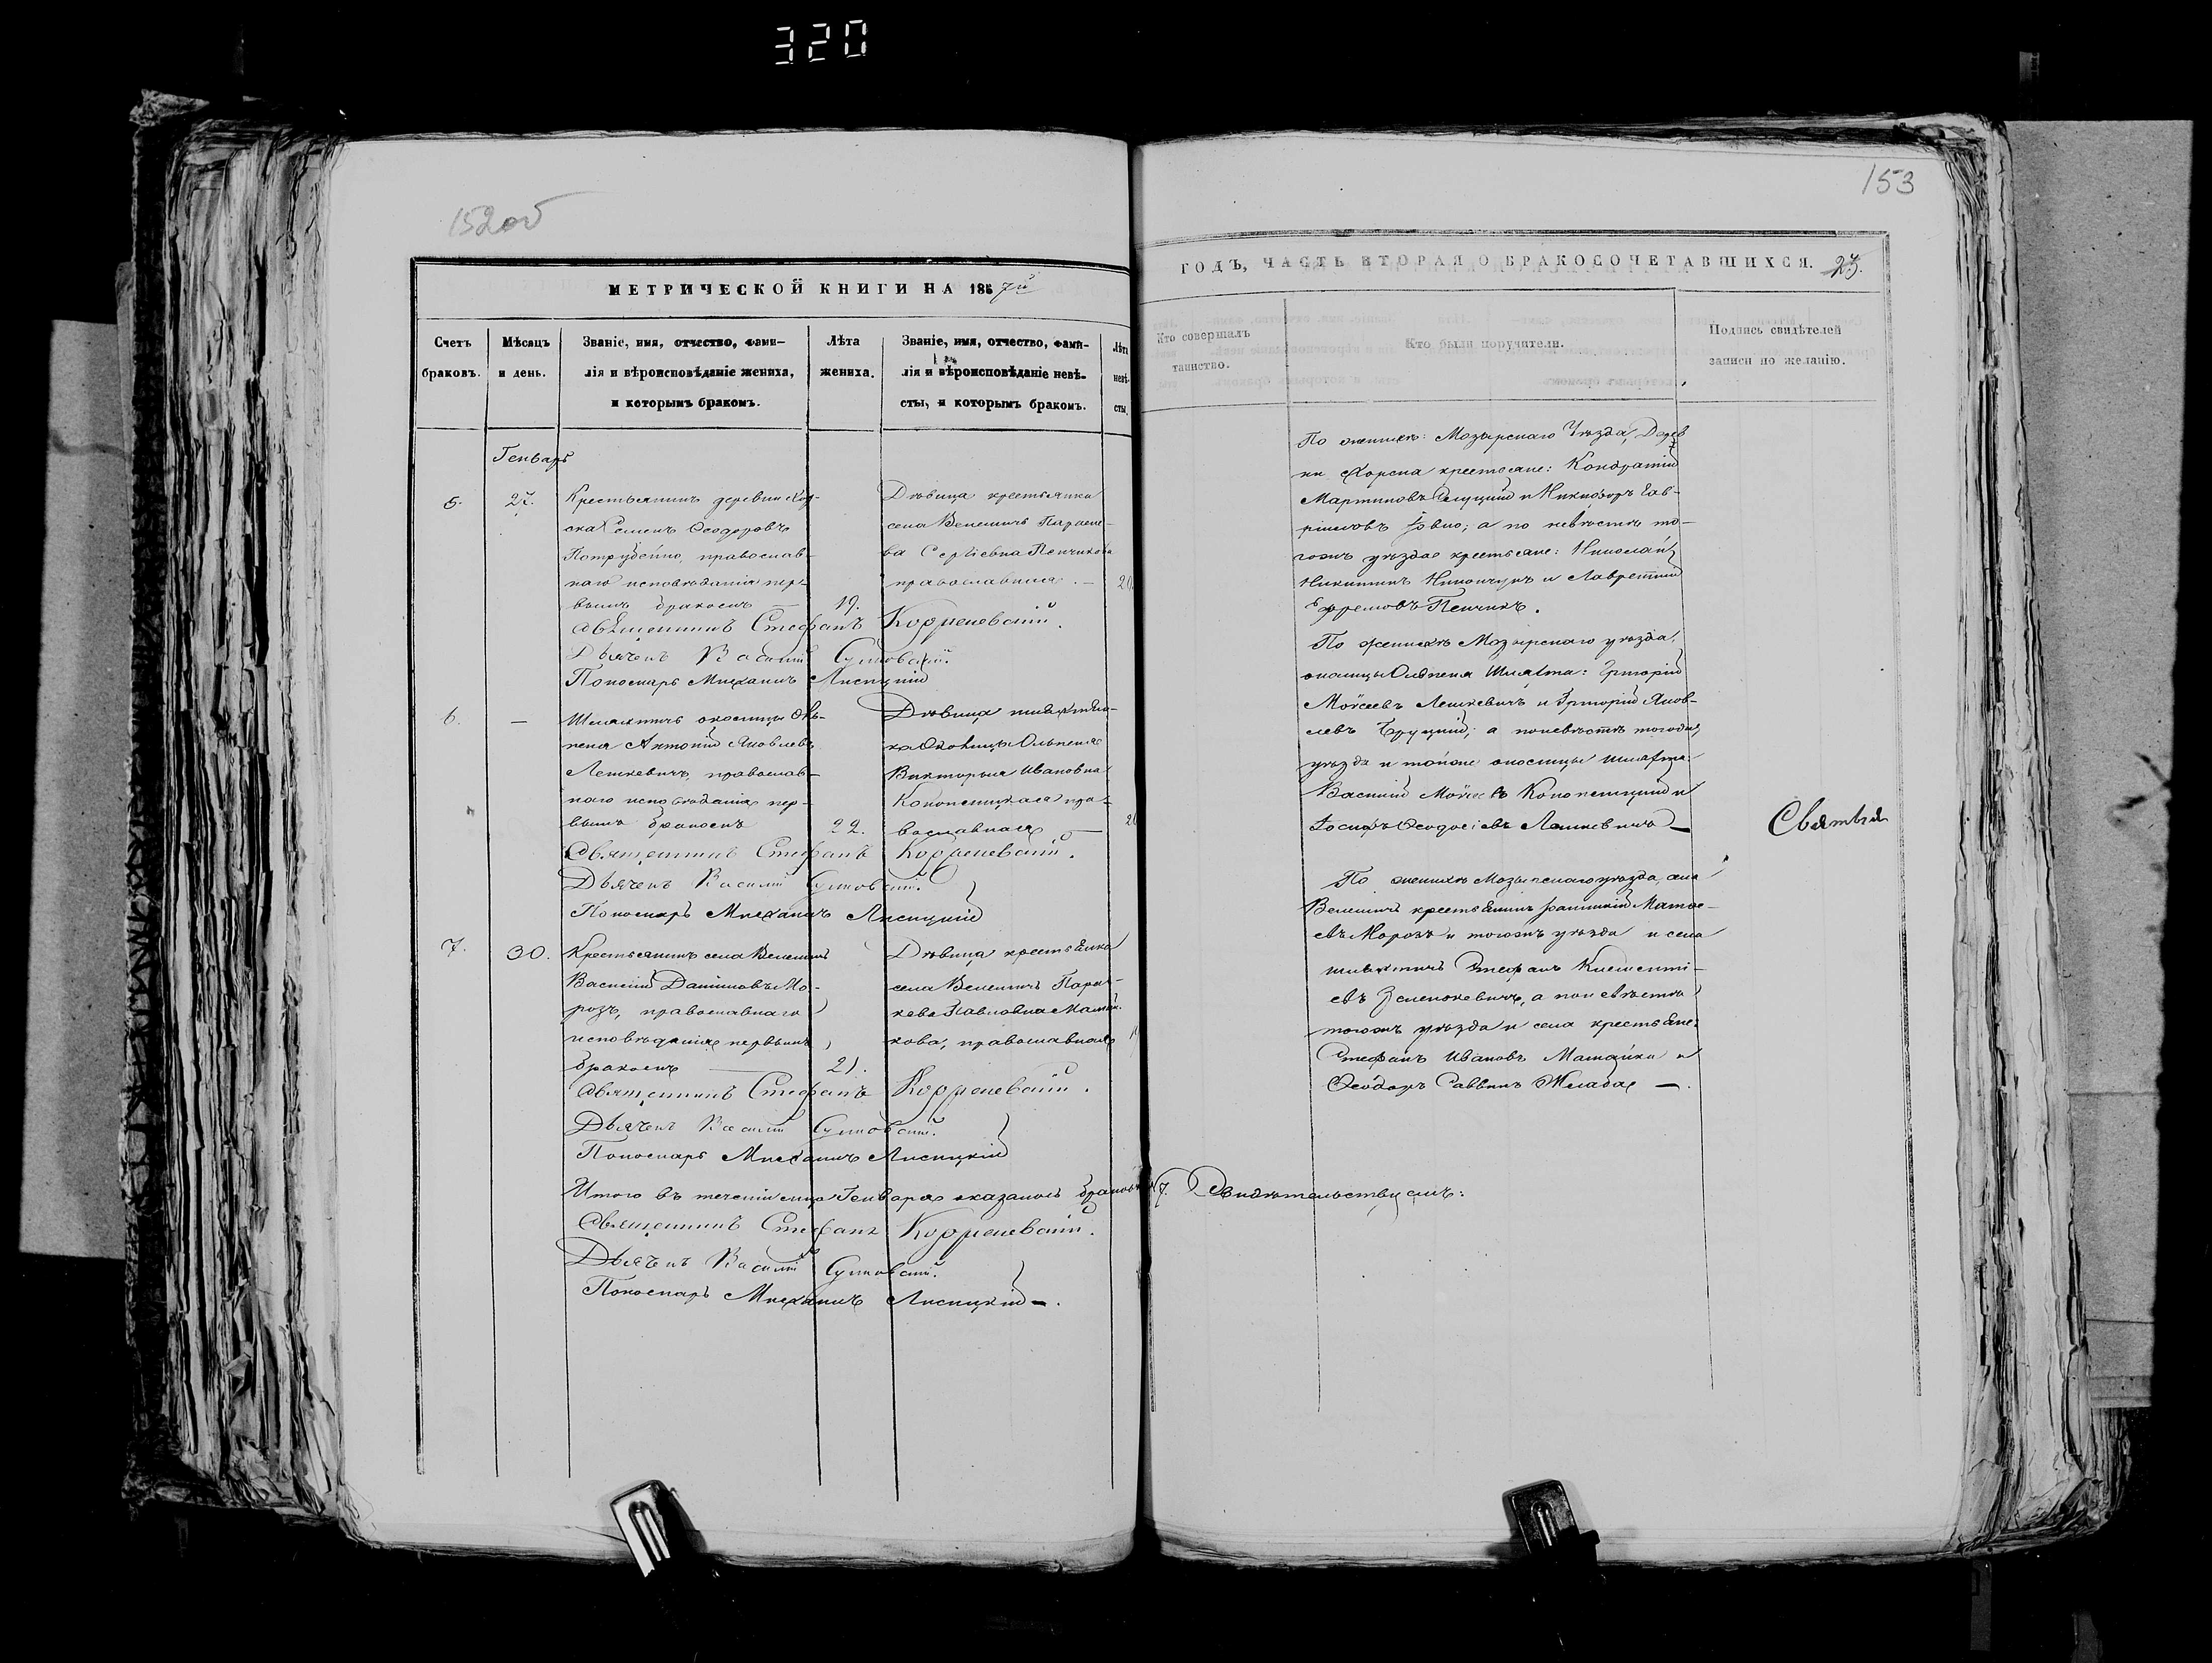 320
152об
153
МЕТРИЧЕСКОЙ КНИГИ НА 1867й
ГОДЪ, ЧАСТЬ ВТОРАЯ О БРАКОСОЧЕТАВШИХСЯ.
Счетъ
браковъ.
Мѣсяцъ
и день.
Званіе, имя, отчество, фами-
лія и вѣроисповѣданіе жениха,
и которымъ бракомъ.
Лѣта
жениха.
Званіе, имя, отчество, фами-
лія и вѣроисповѣданіе невѣ-
сты, и которымъ бракомъ.
Лѣта
невѣ-
сты.
Кто совершалъ
таинство.
Кто были поручители.
Подпись свидѣтелей
записи по желанію.
Генварь
5.
27.
Крестьянинъ деревни Хор-
ска Семенъ Ѳеодоровъ
православ-
наго исповѣданія пер-
вымъ бракомъ
19.
Дѣвица крестьянка
села Велемичъ Параске-
ва Сергіевна Пенчикова
православная. —
20
Священникъ Стефанъ
Дьячекъ Василій
Пономарь Михаилъ Лисицкій
По женихѣ: Мозырскаго Уѣзда, Дерев
ни Хорска крестьяне: Кондратій
Мартиновъ и Никифоръ Гав-
риловъ а по невѣстѣ то-
гожъ уѣзда крестьяне: Николай
Никитинъ и Лаврентій
Ефремовъ Пенчикъ.
6.
—
Шляхтичъ околицы Оль-
пеня Антоній Яковлевъ
Лешкевичъ, православ-
наго исповѣданія пер-
вымъ бракомъ
22.
Дѣвица шляхтян-
ка Околицы Ольпеня
Викторья Ивановна
Конопацкая пра-
вославная —
Священникъ Стефанъ
Дьячекъ Василій
Пономарь Михаилъ Лисицкій
По женихѣ Мозырскаго уѣзда,
околицы Олпеня Шляхта: Григорій
Мойсеевъ Лешкевичъ и Григорій Яков-
левъ а по невѣстѣ тогожъ
уѣзда и тойже околицы шляхта:
Василій Мойсеевъ Конопацкій и
Іосифъ Ѳеодосіевъ Лешкевичъ —
7.
30.
Крестьянинъ села Велемичъ
Василій Даниловъ Мо-
розъ, православнаго
исповѣданія первымъ
бракомъ —
21.
Дѣвица крестьянка
села Велемичъ Парас-
кева Павловна Машай-
кова, православная
Священникъ Стефанъ
Дьячекъ Василій
Пономарь Михаилъ Лисицкій
По женихѣ Мозырскаго уѣзда, села
Велемичъ крестьянинъ Матве-
евъ Морозъ и тогожъ уѣзда и села
шляхтичъ Стефанъ Климентi-
евъ Зеленкевичъ, а по невѣстѣ
тогожъ уѣзда и села крестьяне:
Стефанъ Ивановъ Машайка и
Ѳеодоръ Саввинъ —.
Итого въ теченіи Генваря оказалось браковъ 7. Свидѣтельствуемъ:
Священникъ Стефанъ
Дьячекъ Василій
Пономарь Михаилъ Лисицкій —.